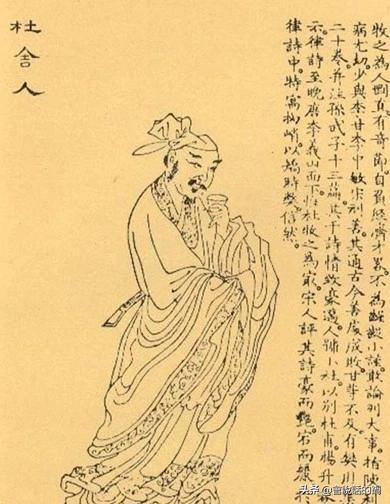 牧之為人剛直有奇節自負經濟才畧不為齪齪小謹敢論列大事指陳利
病尤切少與李甘李中敏宋邧善其通古今善處成敗甘等不及有樊川集
二十卷并注孫武子十三篇其于詩情致豪邁人號小杜以別杜甫楊升菴
云律詩至晚唐李義山而下惟杜牧之為最宋人評其詩豪而艷宕而麗
律詩中特寓拗峭以矯時弊信然
杜舍人
头条